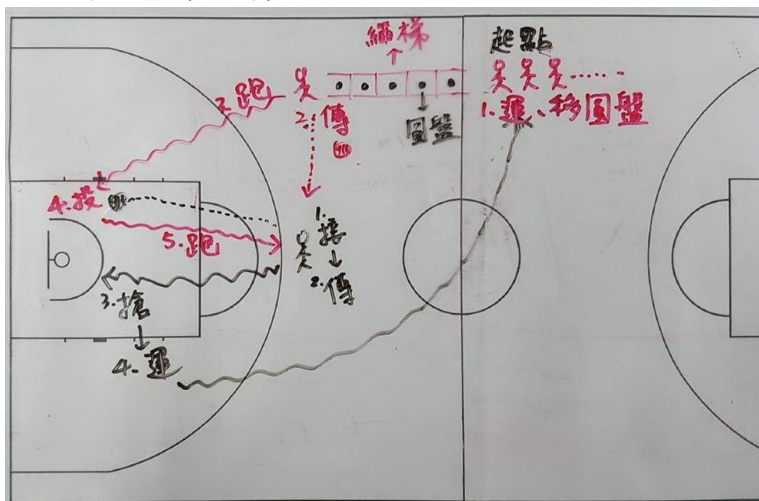 繩梯
起點
1.運、移圓盤
圓盤
3.跑
2.傳
4.投
5.跑
1.接
2.傳
3.搶
4.運